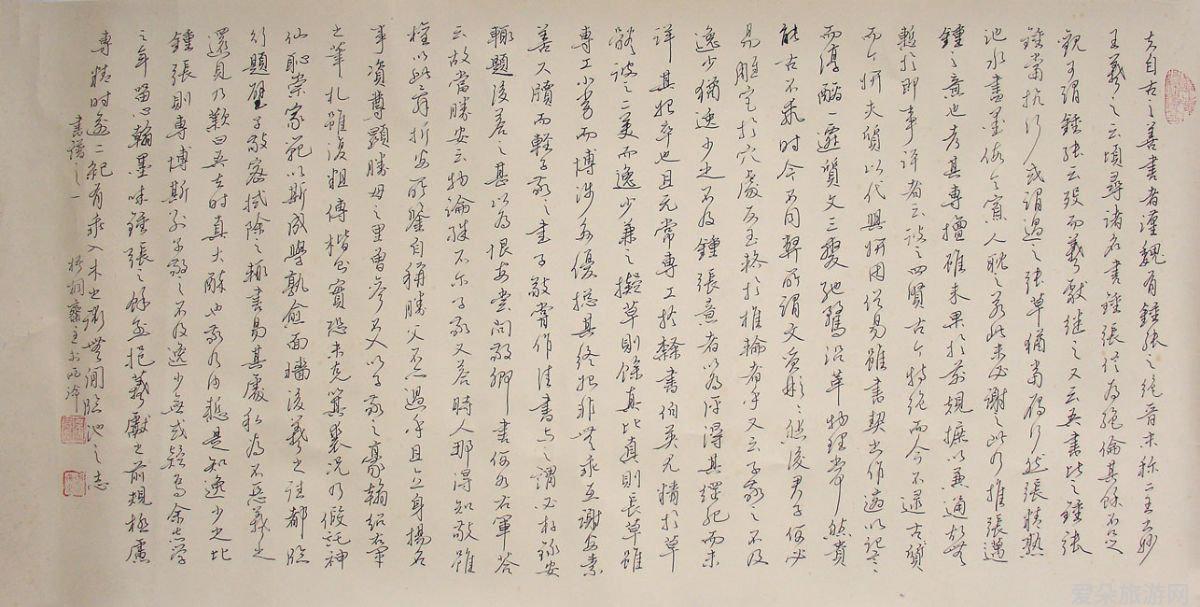 夫自古之善書者漢魏有鍾張之絕晉末稱二王之妙
王羲之云頃尋諸名書鍾張信為絕倫其餘不足
觀可謂鍾張云沒而羲獻繼之又云吾書比之鍾張
鍾當抗行或謂過之張草猶當雁行然張精熟
池水盡墨假令寡人耽之若此未必謝之此乃推張邁
鍾之意也考其專擅雖未果於前規摭以兼通故無
慚於即事評者云彼之四賢古今特絕而今不逮古質
而今妍夫質以代興妍因俗易雖書契之作適以記言
而淳醨一遷質文三變馳騖沿革物理常然貴
能古不乖時今不同弊所謂文質彬彬然後君子何必
易雕宮於穴處反玉輅於椎輪者乎又云子敬之不及
逸少猶逸少之不及鍾張意者以為評得其綱紀而未
詳其始卒也且元常專工於隸書伯英尤精於草
體彼之二美而逸少兼之擬草則餘真比真則長草雖
專工小劣而博涉多優總其終始匪無乖互謝安素
善尺牘而輕子敬之書子敬嘗作佳書與之謂必存錄安
輒題後答之甚以為恨安嘗問敬卿書何如右軍答
云故當勝安云物論殊不爾子敬又答時人那得知敬雖
權以此辭折安所鑒自稱勝父不亦過乎且立身揚名
事資尊顯勝母之里曾參不入以子敬之豪翰紹右軍
之筆札雖復粗傳楷則實恐未克箕裘況乃假託神
仙恥崇家範以斯成學孰愈面牆後羲之往都臨
行題壁子敬密拭除之輒書易其處私為不惡羲之
還見乃歎曰吾去時真大醉也敬乃內慚是知逸少之比
鍾張則專博斯別子敬之不及逸少無或疑焉余志學
之年留心翰墨味鍾張之餘烈挹羲獻之前規極慮
專精時逾二紀有乖入木之術無間臨池之志
書譜之一
爱朵旅游网